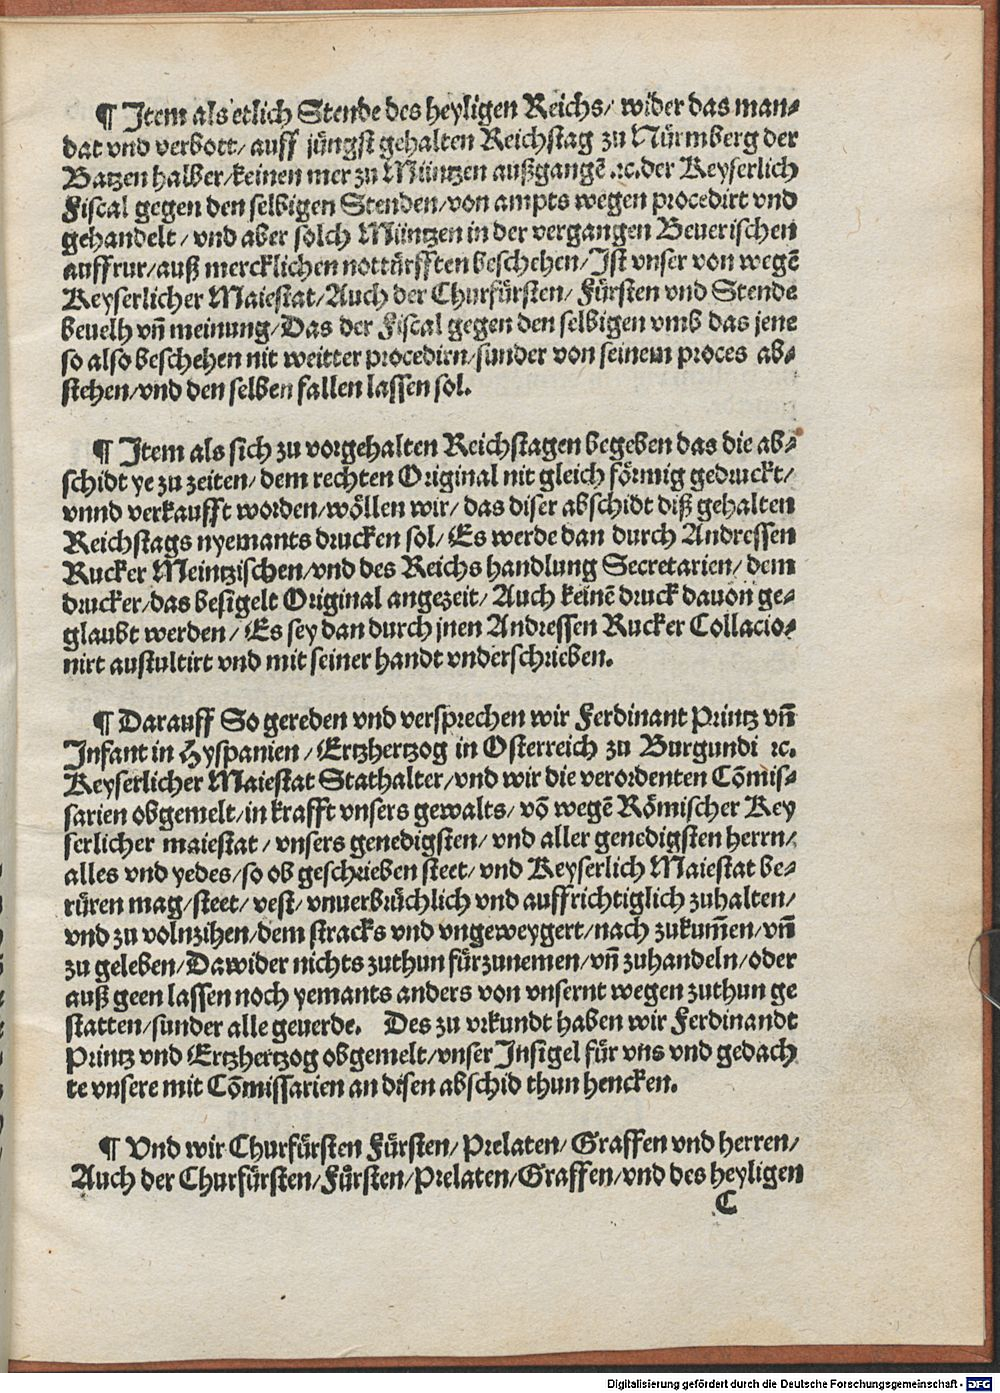 ¶ Item als etlich Stende des heyligen Reichs/ wider das man⸗
dat vnd verbott/ auff jüngst gehalten Reichstag zu Nürmberg der
Batzen halber/keinen mer zu Müntzen außgangẽ ⁊c.der Keyserlich
Fiscal gegen den selbigen Stenden/von ampts wegen procedirt vnd
gehandelt / vnd aber solch Müntzen in der vergangen Beuerischen
auffrur/auß mercklichen nottürfften beschehen/Ist vnser von wegẽ
Keyserlicher Maiestat/Auch der Churfürsten/ Fürsten vnd Stende
beuelh vñ meinung/Das der Fiscal gegen den selbigen vmb das jene
so also beschehen nit weitter procedirn/sunder von seinem proces ab⸗
stehen/vnd den selben fallen lassen sol.
¶ Item als sich zu vorgehalten Reichstagen begeben das die ab⸗
schidt ye zu zeiten/ dem rechten Original nit gleich förmig gedruckt/
vnnd verkaufft worden/wöllen wir/ das diser abschidt diß gehalten
Reichstags nyemants drucken sol/ Es werde dan durch Andressen
Rucker Meintzischen/vnd des Reichs handlung Secretarien/ dem
drucker/das besigelt Original angezeit/ Auch keinẽ druck dauon ge⸗
glaubt werden/ Es sey dan durch jnen Andressen Rucker Collacio⸗
nirt austultirt vnd mit seiner handt vnderschrieben.
¶ Darauff So gereden vnd versprechen wir Ferdinant Printz vñ
Infant in Hyspanien /Ertzhertzog in Osterreich zu Burgundi ⁊c.
Keyserlicher Maiestat Stathalter/vnd wir die verordenten Cõmis⸗
sarien obgemelt/in krafft vnsers gewalts/ võ wegẽ Römischer Key
serlicher maiestat / vnsers genedigsten/ vnd aller genedigsten herrn/
alles vnd yedes/so ob geschrieben steet/ vnd Keyserlich Maiestat be⸗
rüren mag/steet/ vest/ vnuerbrüchlich vnd auffrichtiglich zuhalten/
vnd zu volnzihen/dem stracks vnd vngeweygert/nach zukum̃en/vñ
zu geleben/Dawider nichts zuthun fürzunemen/vñ zuhandeln/oder
auß geen lassen noch yemants anders von vnsernt wegen zuthun ge
statten/sunder alle geuerde. Des zu vrkundt haben wir Ferdinandt
Printz vnd Ertzhertzog obgemelt/vnser Insigel für vns vnd gedach
te vnsere mit Cõmissarien an disen abschid thun hencken.
¶ Vnd wir Churfürsten Fürsten/ Prelaten/ Graffen vnd herren/
Auch der Churfürsten/Fürsten/Prelaten/Graffen/vnd des heyligen
C
Digitalisierung gefördert durch die Deutsche Forschungsgemeinschaft - DFG